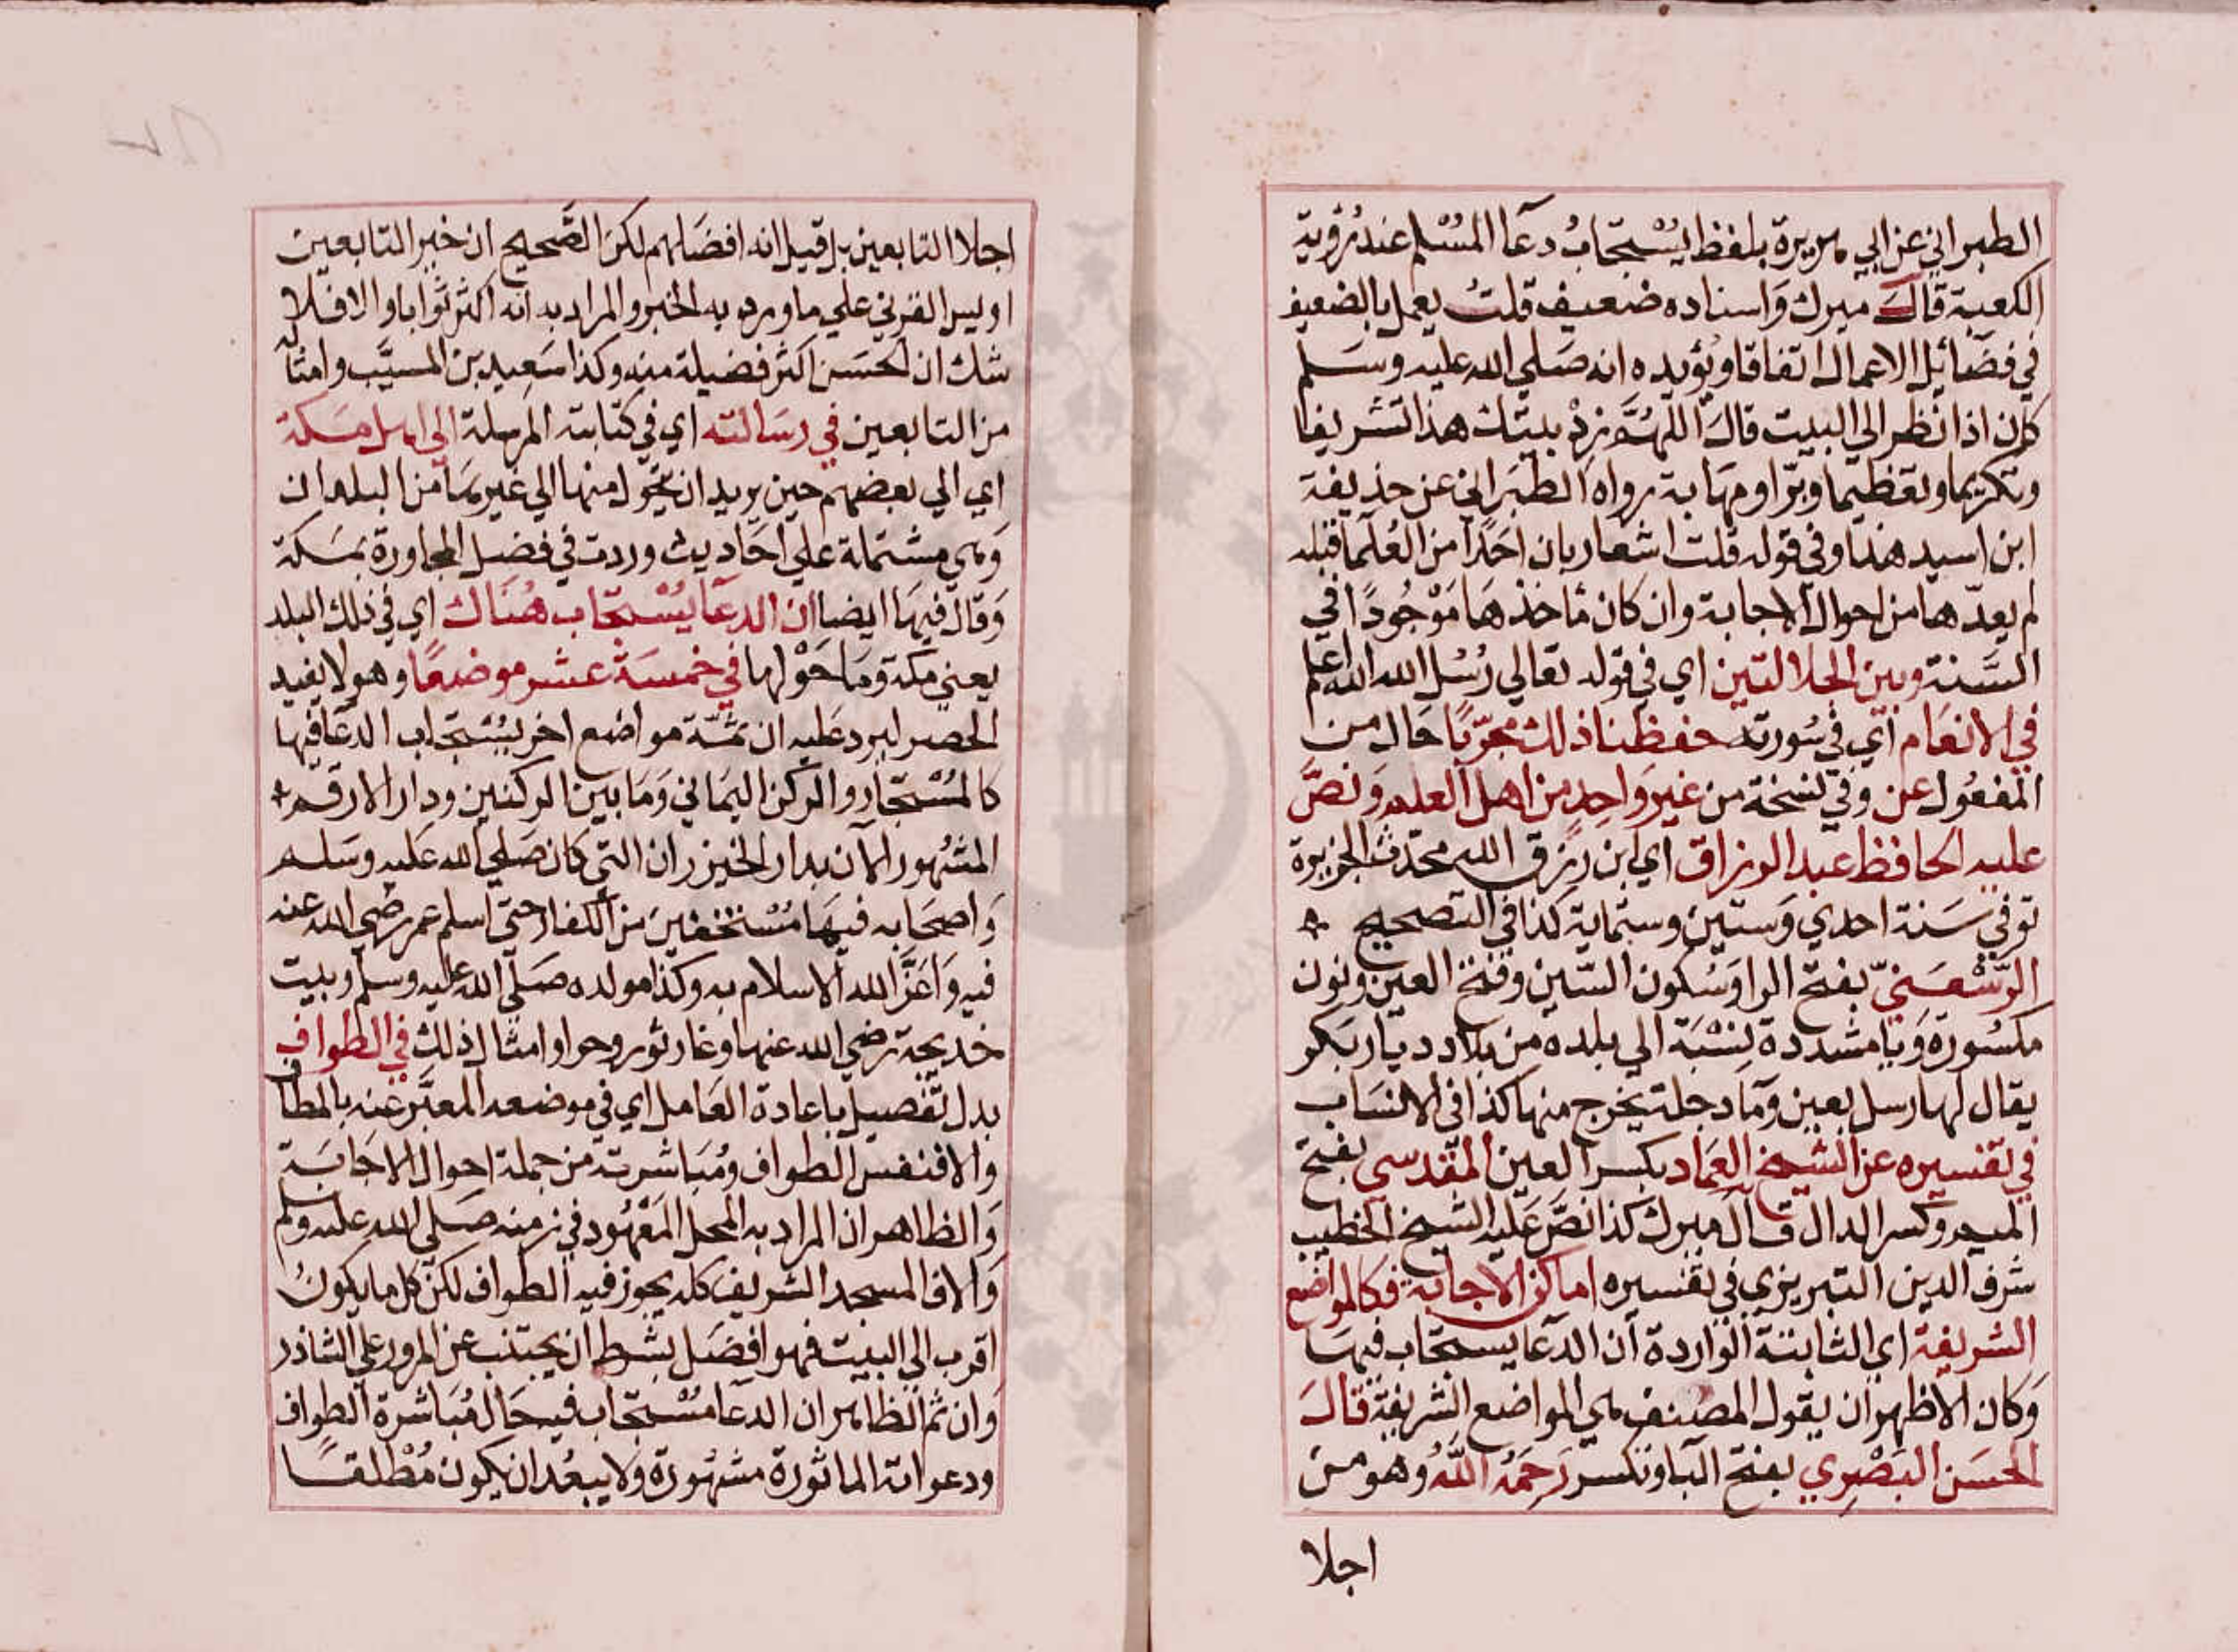 الطبراني عن ابي هريرة بلفظ يُسْتجابُ دعآ المسْلم عند رُؤية
الكعبة قالَ ميرك وَاسناده ضعيف قلتُ يعمل بالضعيف
في فضَائل الاعمال اتفاقا ويُؤيده انه صَلي الله عليه وسَلم
كان اذا نظر الي البيت قالَ اللهُمَّ زدْ بيتك هذا تشريفا
وتكريما وتعظيما وبرّا ومهَابة رواه الطبَراني عن حذيفة
ابن اسيد هذا وفي قوله قلت اشعار بان احَدًا من العُلمَا قبله
لم يعدّها من احوال الاجابة وان كان مَاخذهَا مَوْجُودًا في
السَنة وبين الجلالتين اي في قوله تعالي رُسُل الله الله اعلم
في الانعَام اي في سُورته حفظنا ذلك مجرّبًا حَال من
المفعُول عن وفي نسخة من غير وَاحِدٍ من اهل العلم وَنصَّ
عليه الحافظ عبد الرزاق اي ابن رزق الله محدّث الجزيرة
توفي سَنة احدي وَستين وستماية كذا في التصحيح
الرّسْعَنيّ بفتح الرا وَسُكون السّين وفتح العين ونون
مكسُورة وَيا مشددة نسْبَة الي بلدة من بلاد ديار بَكر
يقال لها رسل بعين وَمَا دجلة يخرج منها كذا في الانسَاب
في تفسيره عن الشيخ العِمَاد بكسر العين المقْدسي بفتح
الميم وكسر الدال قال ميرك كذا نصَّ عَليه الشيخ الخطيب
شرف الدين التبريزي في تفسيره اماكن الاجابة فكالمواضع
الشريفة اي الثابتة الواردة ان الدعا يستجاب فيهَا
وَكان الاظهر ان يقول المصنف هي المواضع الشريفة قالَ
الحسَن البَصْرِي بفتح البا وتكسر رَحِمَهُ اللَّهُ وهو من
اجلا
اجلا التابعين بل قيل انه افضَلهم لكن الصَّحيح ان خير التابعين
اويس القرني علي ما ورد به الخبر والمراد به انه اكثر ثوابا والا فلا
شك ان الحسَن اكثر فضيلة منه وكذا سَعِيد بن المسيَّب وامثاله
من التابعين في رسَالته اي في كتابته المرسلة الي اهل مَكة
اي الي بعضهم حين يريد ان يتحَول منها الي غيرهَا من البلدان
وَهي مشتملة علي احَاديث وردت في فضل المجاورة بمَكة
وَقال فيهَا ايضا ان الدعَا يُسْتجاب هُنَاك اي في ذلك البلد
يعني مكة وَمَا حَوْلها في خمسَة عشر موضعًا وهو لا يفيد
الحصر ليرد عَليه ان ثمّة مواضع اخر يُسْتجاب الدعَا فيها
كالمُسْتجار والركن اليمَاني وَمَا بين الركنين ودار الارقم
المشهُور الآن بدار الخيزران التي كان صَلي الله عَليه وسَلم
وَاصحَابه فيهَا مُسْتخفين من الكفار حتي اسلم عمر رضي الله عنه
فيه وَاعَزَّ الله الاسلام به وكذا مولده صَلي الله عليه وسلم وبيت
خديجة رضي الله عنها وغار ثور وحرا وامثال ذلك في الطواف
بدل تفصيل باعادة العَامل اي في موضعه المعبَّر عنه بالمطاف
والا فنفس الطواف ومُبَاشرته من جملة احوال الاجَابَة
وَالظاهر ان المراد به المحل المَعْهُود في زمنه صَلي الله عليه وسلم
وَالا فالمسجد الشريف كله يجوز فيه الطواف لكن كل ما يكونُ
اقرب الي البيت فهو افضَل بشرط ان يجتنب عن المرور علي الشاذر
وَان ثم الظاهر ان الدعآ مسْتجاب في حَال مُبَاشرة الطواف
ودعواته الماثورة مشهُورة وَلا يبعُد ان يكون مُطْلقًا